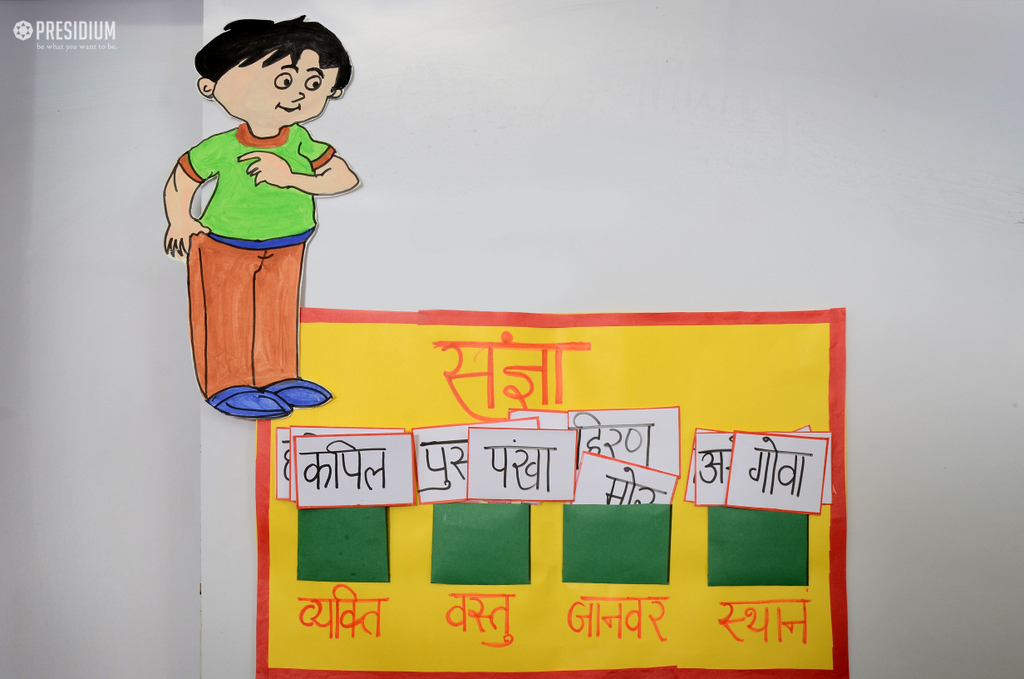 PRESIDIUM
be what you want to be.
संज्ञा
कपिल
पंखा
हिरण
मोर
गोवा
व्यक्ति वस्तु जानवर स्थान